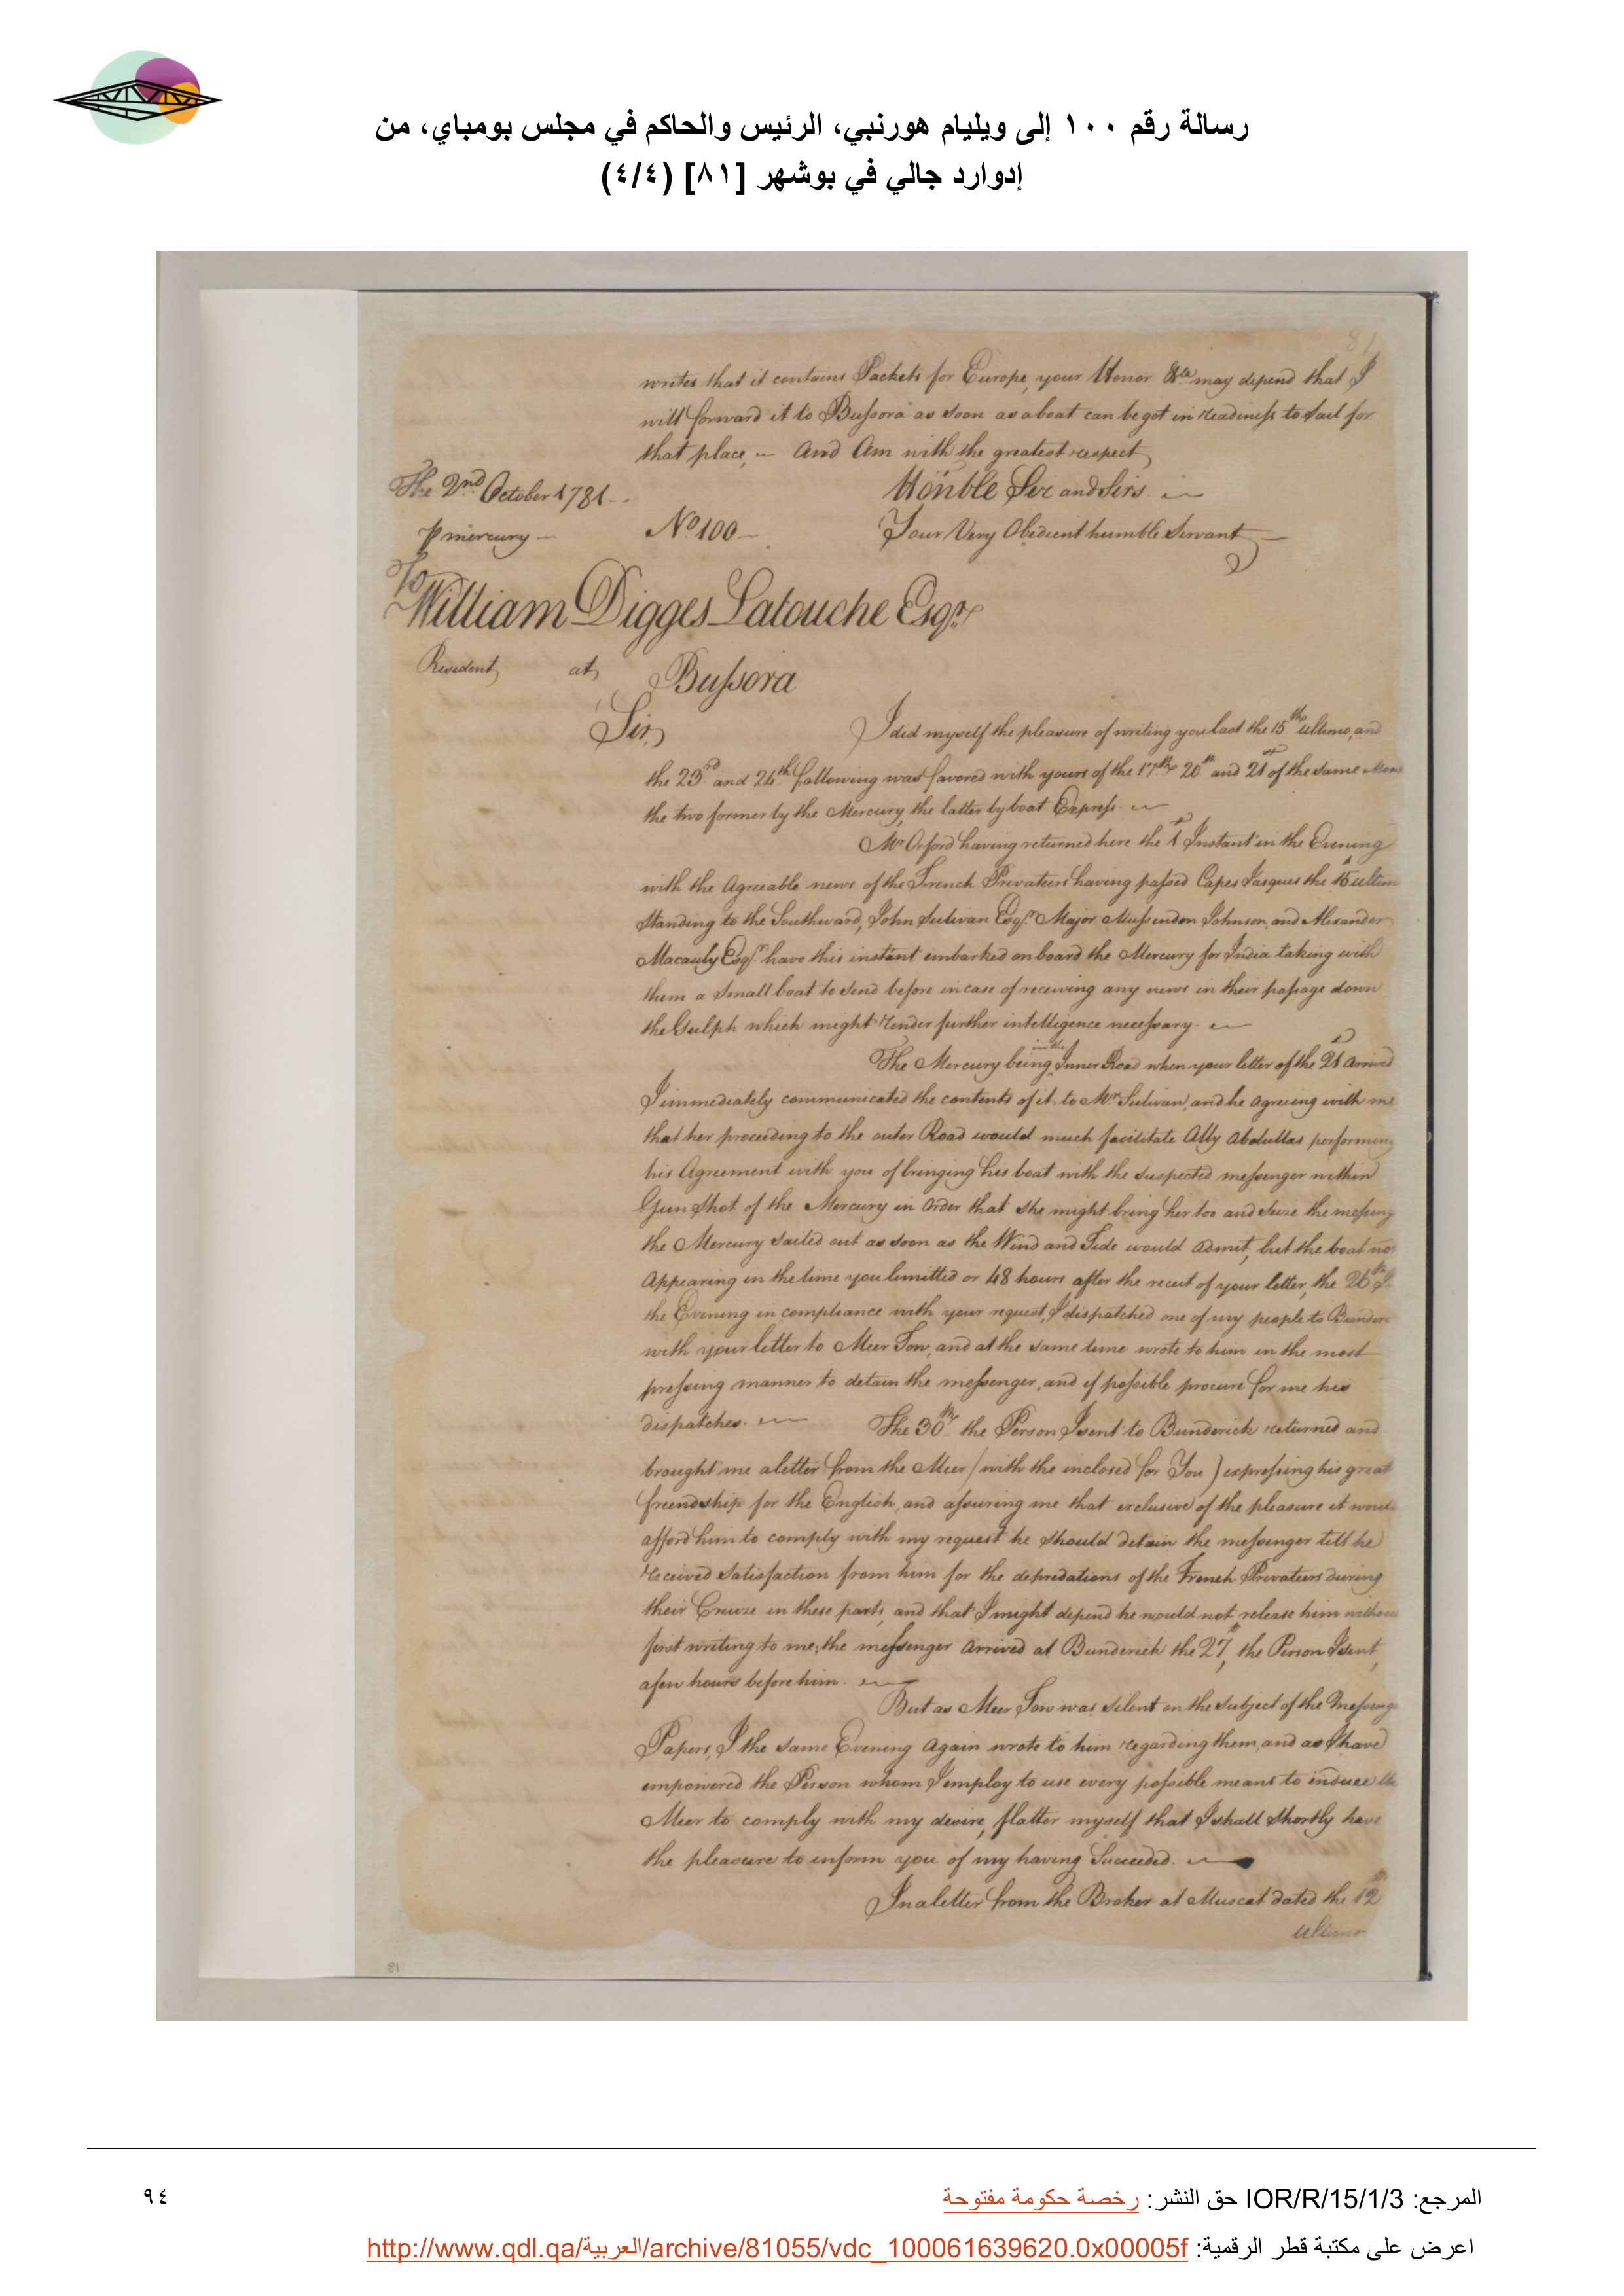 رسالة رقم ١٠٠ إلى ويليام هورنبي، الرئيس والحاكم في مجلس بومباي، من
إدوارد جالي في بوشهر [٨١] (٤/٤)
81
writes that it contains Packets for Europe, your Honor &ca may depend that I
will forward it to Bussora as soon as a boat can be got in readiness to sail for
that place, ~ And Am with the greatest respect
The 2nd October 1781
Honble Sir and Sirs
P mercury No 100 Your Very Obedient humble Servant
To
William Digges Latouche Esqr
Resident at Bussora
Sir,
I did myself the pleasure of writing you last the 15th Ultimo, and
the 23rd and 24th following was favored with yours of the 17th 20th and 21st of the same
the two former by the Mercury, the latter by boat Express.
Mr Orford having returned here the 1st Instant in the Evening
with the Agreeable news of the French Privateers having passed Capes Jasques the 15 ultimo
Standing to the Southward, John Sulivan Esqr Major Mussenden Johnson, and Alexander
Macauly Esqr have this instant embarked on board the Mercury for India taking with
them a small boat to send before incase of receiving any news in their passage down
the Gulph which might render further intelligence necessary.
The Mercury being in the Inner Road when your letter of the 21st Arrived
I immediately communicated the contents of it to Mr Sulivan, and he Agreeing with me
that her proceeding to the outer Road would much facilitate Ally Abdullas performing
his Agreement with you of bringing his boat with the suspected messenger within
Gun Shot of the Mercury in Order that she might bring her too and seize the
the Mercury sailed out as soon as the Wind and Tide would Admit, but the boat not
Appearing in the time you limitted or 48 hours after the receit of your letter, the 26th
the Evening in compliance with your request, I dispatched one of my people to
with your letter to Meer Tow, and at the same time wrote to him in the most
pressing manner to detain the messenger, and if possible procure for me his
dispatches. The 30th the Person I sent to Bunderick returned and
brought me a letter from the Meer (with the inclosed for You) expressing his great
friendship for the English, and assuring me that exclusive of the pleasure it would
afford him to comply with my request he should detain the messenger till he
received satisfaction from him for the depredations of the French Privateers during
their Cruize in these parts, and that I might depend he would not release him without
first writing to me; the messenger Arrived at Bunderick the 27th, the Person I sent,
a few hours before him.
But as Meer Tow was silent on the subject of the
Papers, I the same Evening Again wrote to him regarding them, and as I have
empowered the Person whom I employ to use every possible means to induce the
Meer to comply with my desire, flatter myself that I shall shortly have
the pleasure to inform you of my having Succeeded.
In a letter from the Broker at Muscat dated the 12
ultimo
81
المرجع: IOR/R/15/1/3 حق النشر: رخصة حكومة مفتوحة
٩٤
اعرض على مكتبة قطر الرقمية: http://www.qdl.qa/العربية/archive/81055/vdc_100061639620.0x00005f